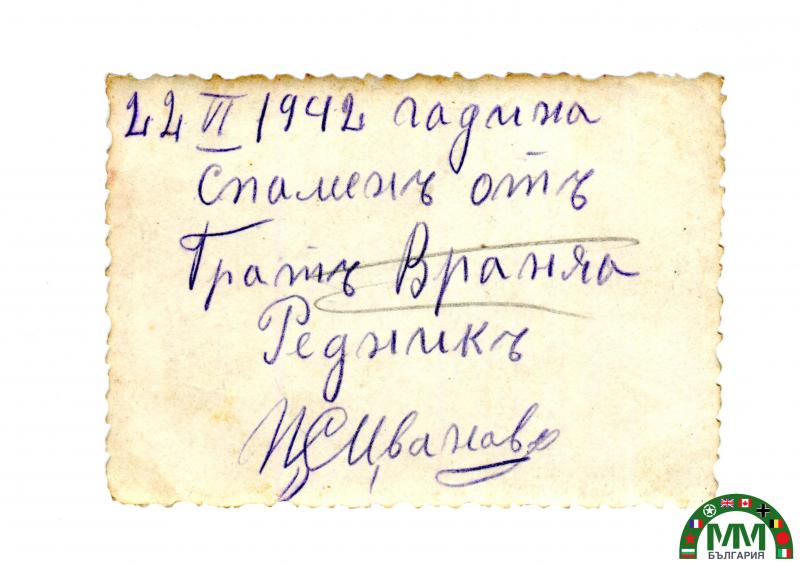 22 VI 1942 година
Споменъ отъ
Гратъ Враняа
Редникъ
Ц С Ивановъ
ММ
БЪЛГАРИЯ